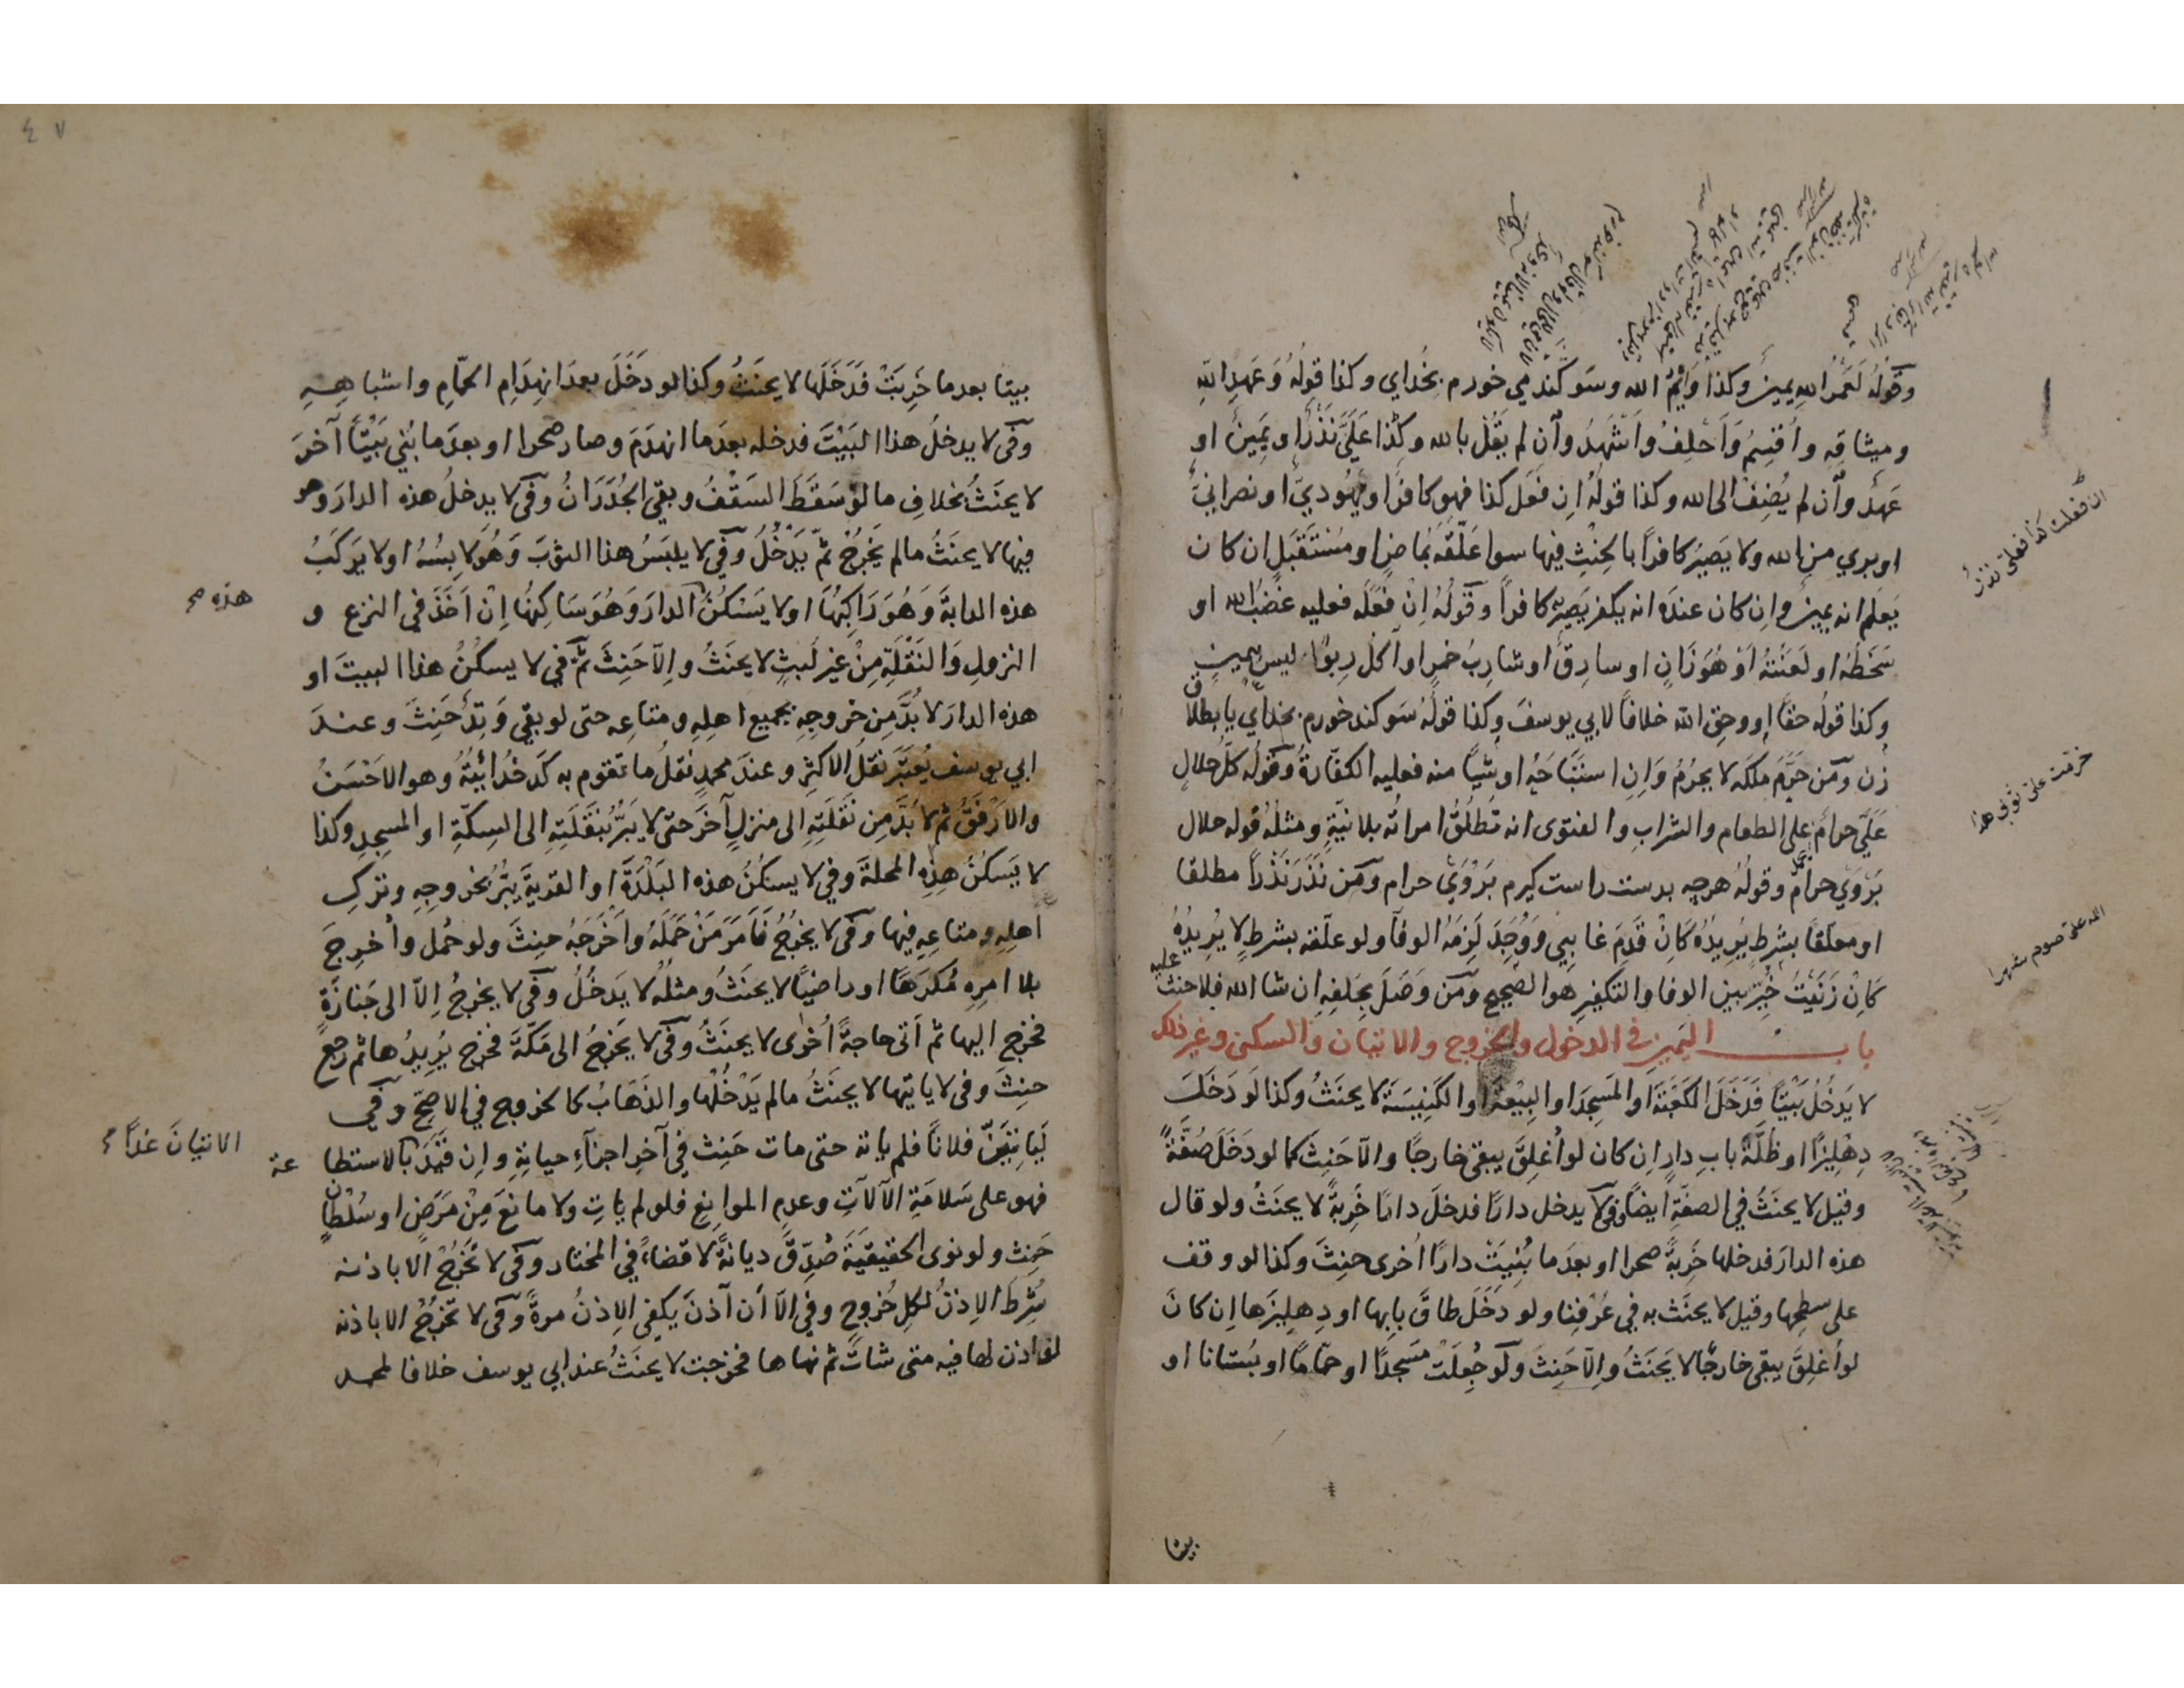 وقوله لَعَمْرُ الله يمين وكذا وَايْمُ الله وسَوكند مي خورم بخُداي وكذا قوله وَعَهدِ الله
وميثاقِه واُقسِمُ وَاَحْلِفُ واَشْهَدُ وآن لم يَقُلْ بالله وكذا عَلَيَّ نَذْرٌ او يَمِينٌ او
عَهدٌ وآن لم يُضِفْ الى الله وكذا قولهُ اِن فَعَل كذا فهو كافرٌ او يهُوديٌّ او نصرانيٌّ
او بري من الله ولا يَصِيرُ كافراً بالحِنْثِ فيها سوا عَلّقَه بمَاضٍ او مُسْتَقبَلٍ ان كان
يَعلَم انه يمينٌ واِن كان عندَه انه يكفر يَصِير به كافراً وقولُهُ اِنْ فَعَلَه فعليه غضبُ الله او
سَخَطُهُ او لَعنتُه اَوْ هُوَ زَانٍ او سارِقٌ او شارِبُ خمرٍ او آكلُ رِبوًا ليس بيمينٍ
وكذا قولُه حقًا او وحقِ الله خلافاً لابي يوسفَ وكذا قولهُ سَوكند خورم بخداي يا بطلاق
زن ومَن حَرَّمَ مِلكَه لا يحرُمُ وَاِنِ استَبَاحَهُ او شيًا منه فعليه الكفّارةُ وقوله كلُّ حلالٍ
عَلَيَّ حرامٌ على الطعام والشرابِ والفتوى انه تَطلُقُ امراته بلا نيّةٍ ومثلُهُ قوله حلال
بَرْوَيْ حرامٌ وقولُهُ هرچه بدست راست كيرم بَرْوَيْ حرام ومَن نَذَرَ نَذْراً مطلقا
او معلّقاً بشرطٍ يُريدُه كَاِنْ قَدِمَ غايبي ووُجِدَ لَزِمَهُ الوفآ ولو علّقه بشرطٍ لا يُرِيدُهُ
كَاِنْ زَنَيْتُ خُيِّرَ بين الوفا والتكفيرِ هو الصّحيح ومَن وَصَلَ بحَلفِه اِن شا الله فلا حنث عليه
باب اليمين في الدخول والخروج والاتيان والسكنى وغير ذلك
لا يَدخُلُ بَيْتًا فَدَخَلَ الكَعْبَةَ او المَسجِدَ او البِيْعَةَ او الكَنِيسَةَ لا يحنَثُ وكذا لَو دَخَلَ
دِهْلِيزًا او ظُلَّةَ بابِ دارٍ اِن كان لو اُغلِقَ يبقى خارجًا والّا حَنِثَ كما لو دَخَلَ صُفَّةً
وقيل لا يحنَثُ في الصفّةِ ايضًا وفي لا يدخل دارًا فدخلَ دارًا خَرِبةً لا يحنَثُ ولو قال
هذه الدارَ فدخلها خَرِبةً صحرا او بعدَما بُنِيَتْ دارًا اُخرى حنِثَ وكذا لو وقف
على سطحِها وقيل لا يحنَث به في عُرْفِنا ولو دَخَلَ طاقَ بابِها او دِهلِيزَها اِن كان
لو اُغلِقَ يبقى خارجًا لا يَحنَثُ والّا حَنِثَ ولو جُعِلَتْ مَسجدًا او حمّامًا او بُستانا او
بيتا
ان فعلت كذا فعلىّ نذرٌ
حرمت علىّ ثوبي هذا
لله علىّ صوم شهرا
٤٧
بيتا بعدما خَرِبَتْ فَدَخَلَها لا يحنَثُ وكذا لو دخَلَ بعدَ انهِدَامِ الحمّامِ واشباهِهِ
وفي لا يدخلُ هذا البَيْتَ فدخله بعدَما انهدَمَ وصار صحرا او بعدَما بُنِيَ بَيْتًا آخرَ
لا يحنَثُ بخلافِ ما لو سَقَطَ السَقْفُ وبقي الجُدْرَانُ وفي لا يدخلُ هذه الدارَ وهو
فيها لا يحنَثُ مالم يَخرُجْ ثمّ يَدْخُلُ وفي لا يلبَسُ هذا الثوبَ وَهُوَ لابِسُهُ او لا يَركَبُ
هذه الدابةَ وَهُوَ رَاكِبُهَا او لا يَسْكُنُ الدارَ وَهُوَ سَاكِنُهُا اِنْ اَخَذَ في النزعِ و
النزولِ وَالنَقْلَةِ مِنْ غيرِ لَبثٍ لا يحنَثُ والّا حَنِثَ ثمّ في لا يسكُنُ هذا البيتَ او
هذه الدارَ لا بُدَّ مِن خروجِهِ بجميع اهلِهِ ومتاعِه حتى لو بقي وَتِدٌ حَنِثَ وعندَ
ابي يوسف يُعتبَرُ نقلُ الاكثرِ وعندَ محمدٍ نقلُ ما تقوم به كَدخُدائيّتُه وهو الاحسَنُ
والارفَقُ ثم لا بُدَّ مِن نَقَلَتِهِ الى منزلٍ آخَرَ حتى لا يَبَرُّ بنَقَلَتِهِ الى السِكّةِ او المسجِدِ وكذا
لا يَسكُنُ هذِهِ المحلةَ وفي لا يسكُنُ هذه البَلْدَةَ او القريةَ يَبَرُّ بخروجِهِ وتركِ
اهلِهِ ومتاعِهِ فيها وفي لا يخرُجُ فَاَمَرَ مَنْ حَمَلَهُ واَخْرَجَهُ حنِثَ ولو حُمل واُخرِجَ
بلا امرِهِ مُكرَهًا او راضيًا لا يحنَثُ ومثلُهُ لا يَدخُلُ وفي لا يخرجُ اِلّا الى جَنازَةٍ
فخرج اليها ثم اَتى حاجةً اُخرى لا يحنَثُ وفي لا يَخرجُ الى مَكّةَ فخرج يُرِيدُها ثم رجع
حنِثَ وفي لا ياتيها لا يحنَثُ مالم يَدْخُلْها والذَهَابُ كالخروج في الاصَحِّ وفي
لَيَاتِيَنَّ فلاناً فلم ياته حتى مات حَنِث في آخرِ اجزآءِ حياتِهِ واِن قَيَّدَ بالاستطاعة
فهو على سَلامَةِ الآلاتِ وعدمِ الموانِعِ فلو لم ياتِ ولا مانِعَ مِنْ مَرَضٍ او سُلْطانٍ
حَنِث ولو نوى الحقيقيّةَ صُدِّقَ ديانةً لا قضاءً في المختار وفي لا تَخرُجُ الا باذنه
شُرِطَ الاِذنُ لكلِ خُروجٍ وفي الّا اَن آذَنَ يكفي الاِذنُ مرةً وفي لا تخرُجُ الا باذنه
لو اذن لها فيه متى شاتْ ثم نهاها فخرجت لا يحنَثُ عند ابي يوسف خلافا لمحمد
هذه صح
الاتيانَ غدًا